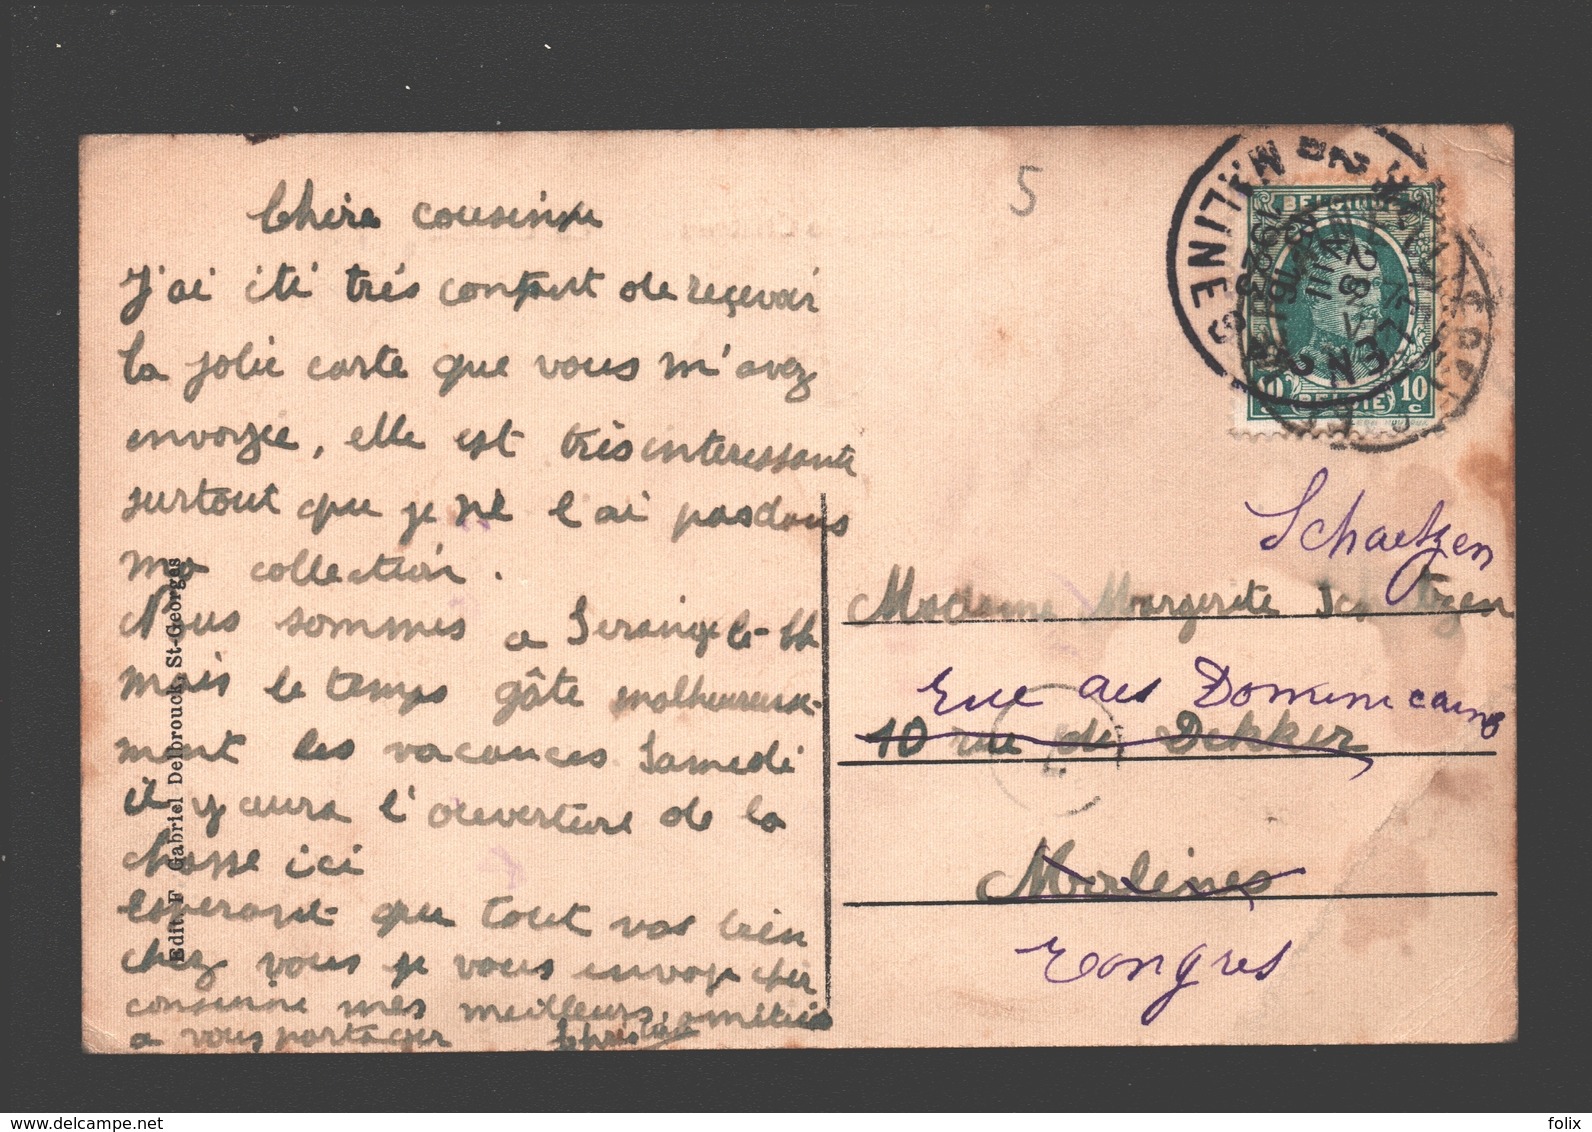 5
Chère cousine
J'ai été très content de reçevoir
la jolie carte que vous m'avez
envoyée, elle est très interessante
surtout que je ne l'ai pas dans
ma collection.
Nous sommes a Serange le-Ch
mais le temps gâte malheureuse-
ment les vacances Samedi
il y aura l'ouverture de la
chasse ici
esperant que tout vas bien
chez vous je vous envoye cher
cousinne mes meilleurs amitiés
a vous partager Christian
Edit. F Gabriel Delbrouck, St-Georges
BELGIQUE
10 10
c
BELGIË
MALINES 2
28 VIII
1923
Schaetzen
Madame Margerite Schetzen
Rue des Dominicains
10 rue de Dekker
Malines
Tongres
www.delcampe.net
folix